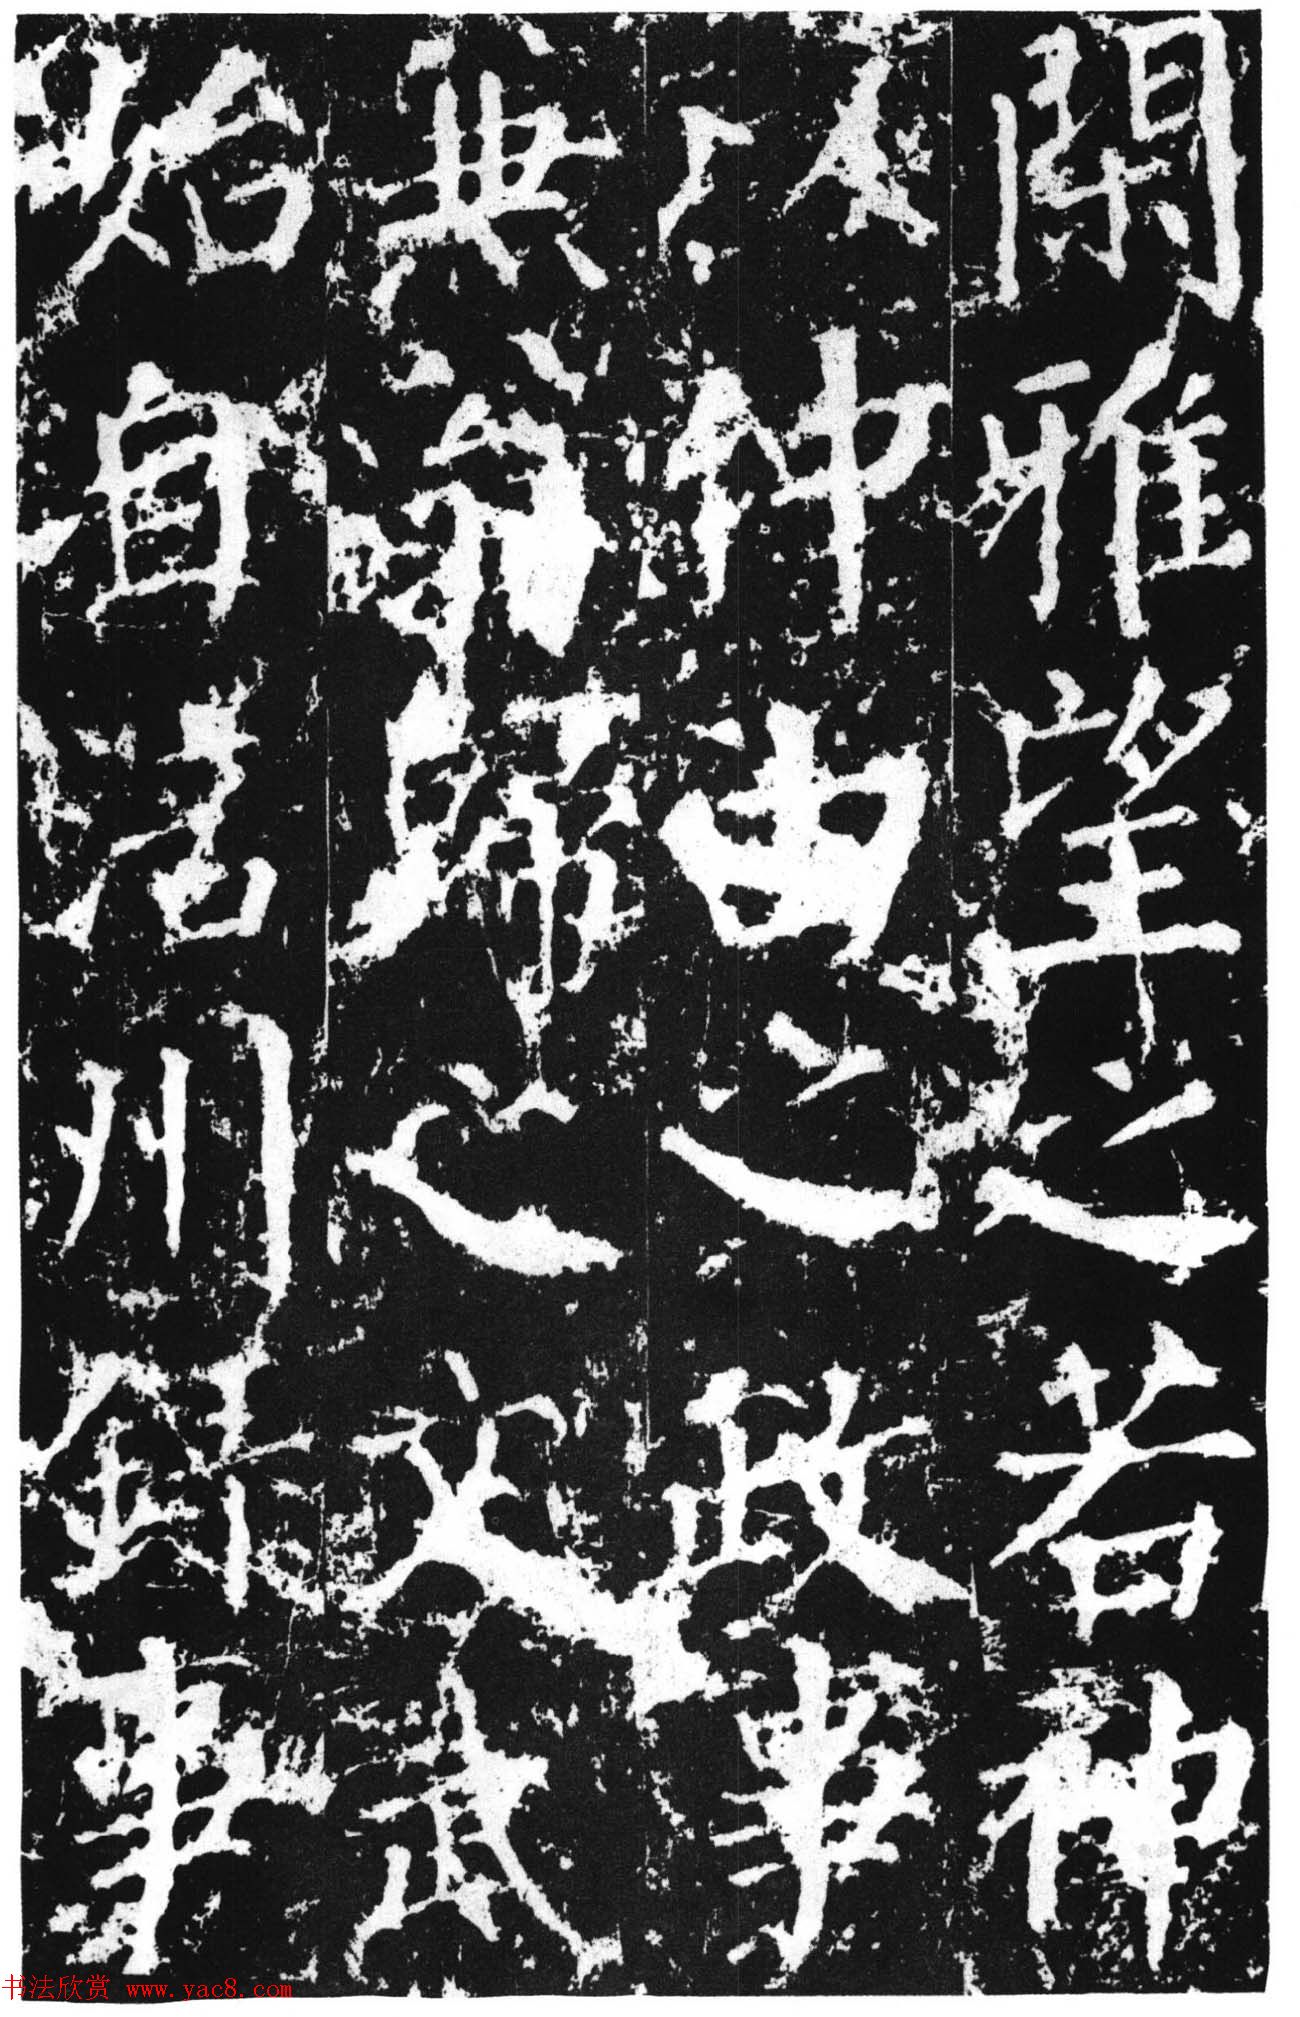 閑雅望之若神
以仲由之政事
兼翁歸之文武
始自洺州錄事
书法欣赏 www.yac8.com